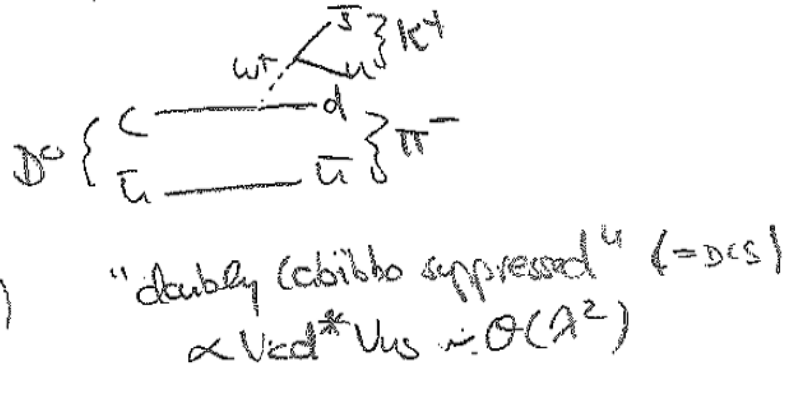 s̅ } K⁺
W⁺ u
D⁰ { c d } π⁻
u̅ u̅
"doubly Cabibbo suppressed" (=DCS)
∝ Vcd* Vus ∼ O(λ²)